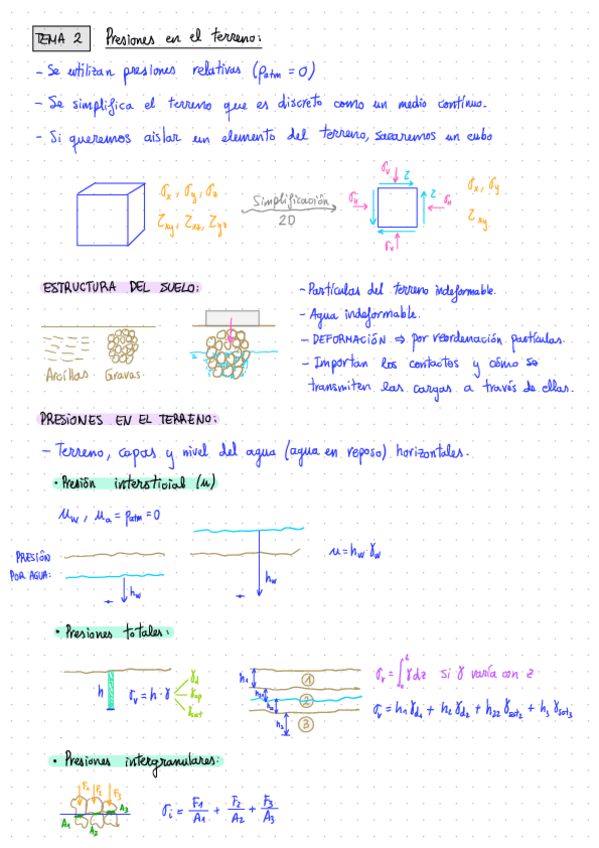 TEMA 2 Presiones en el terreno:
- Se utilizan presiones relativas (Patm = 0)
- Se simplifica el terreno que es discreto como un medio continuo.
- Si queremos aislar un elemento del terreno, sacaremos un cubo
σx, σy, σz
τxy, τxz, τyz
Simplificación
2D
σv
τ
σH
τ
σH
σv
σx, σy
τxy
ESTRUCTURA DEL SUELO:
Arcillas Gravas
- Partículas del terreno indeformable.
- Agua indeformable.
- DEFORMACIÓN ⇒ por reordenación partículas.
- Importan los contactos y cómo se
transmiten las cargas a través de ellas.
PRESIONES EN EL TERRENO:
- Terreno, capas y nivel del agua (agua en reposo) horizontales.
• Presión intersticial (u)
uw, ua = patm = 0
PRESIÓN
POR AGUA:
hw
hw
u = hw·γw
• Presiones totales:
h
σv = h·γ
γd
γap
γsat
h1
h2
h3
1
2
3
σv = ∫ γdz si γ varía con z
σv = h1 γd1 + h2 γd2 + h22 γsat2 + h3 γsat3
• Presiones intergranulares:
F1 F2 F3
A1 A2 A3
σi = F1/A1 + F2/A2 + F3/A3